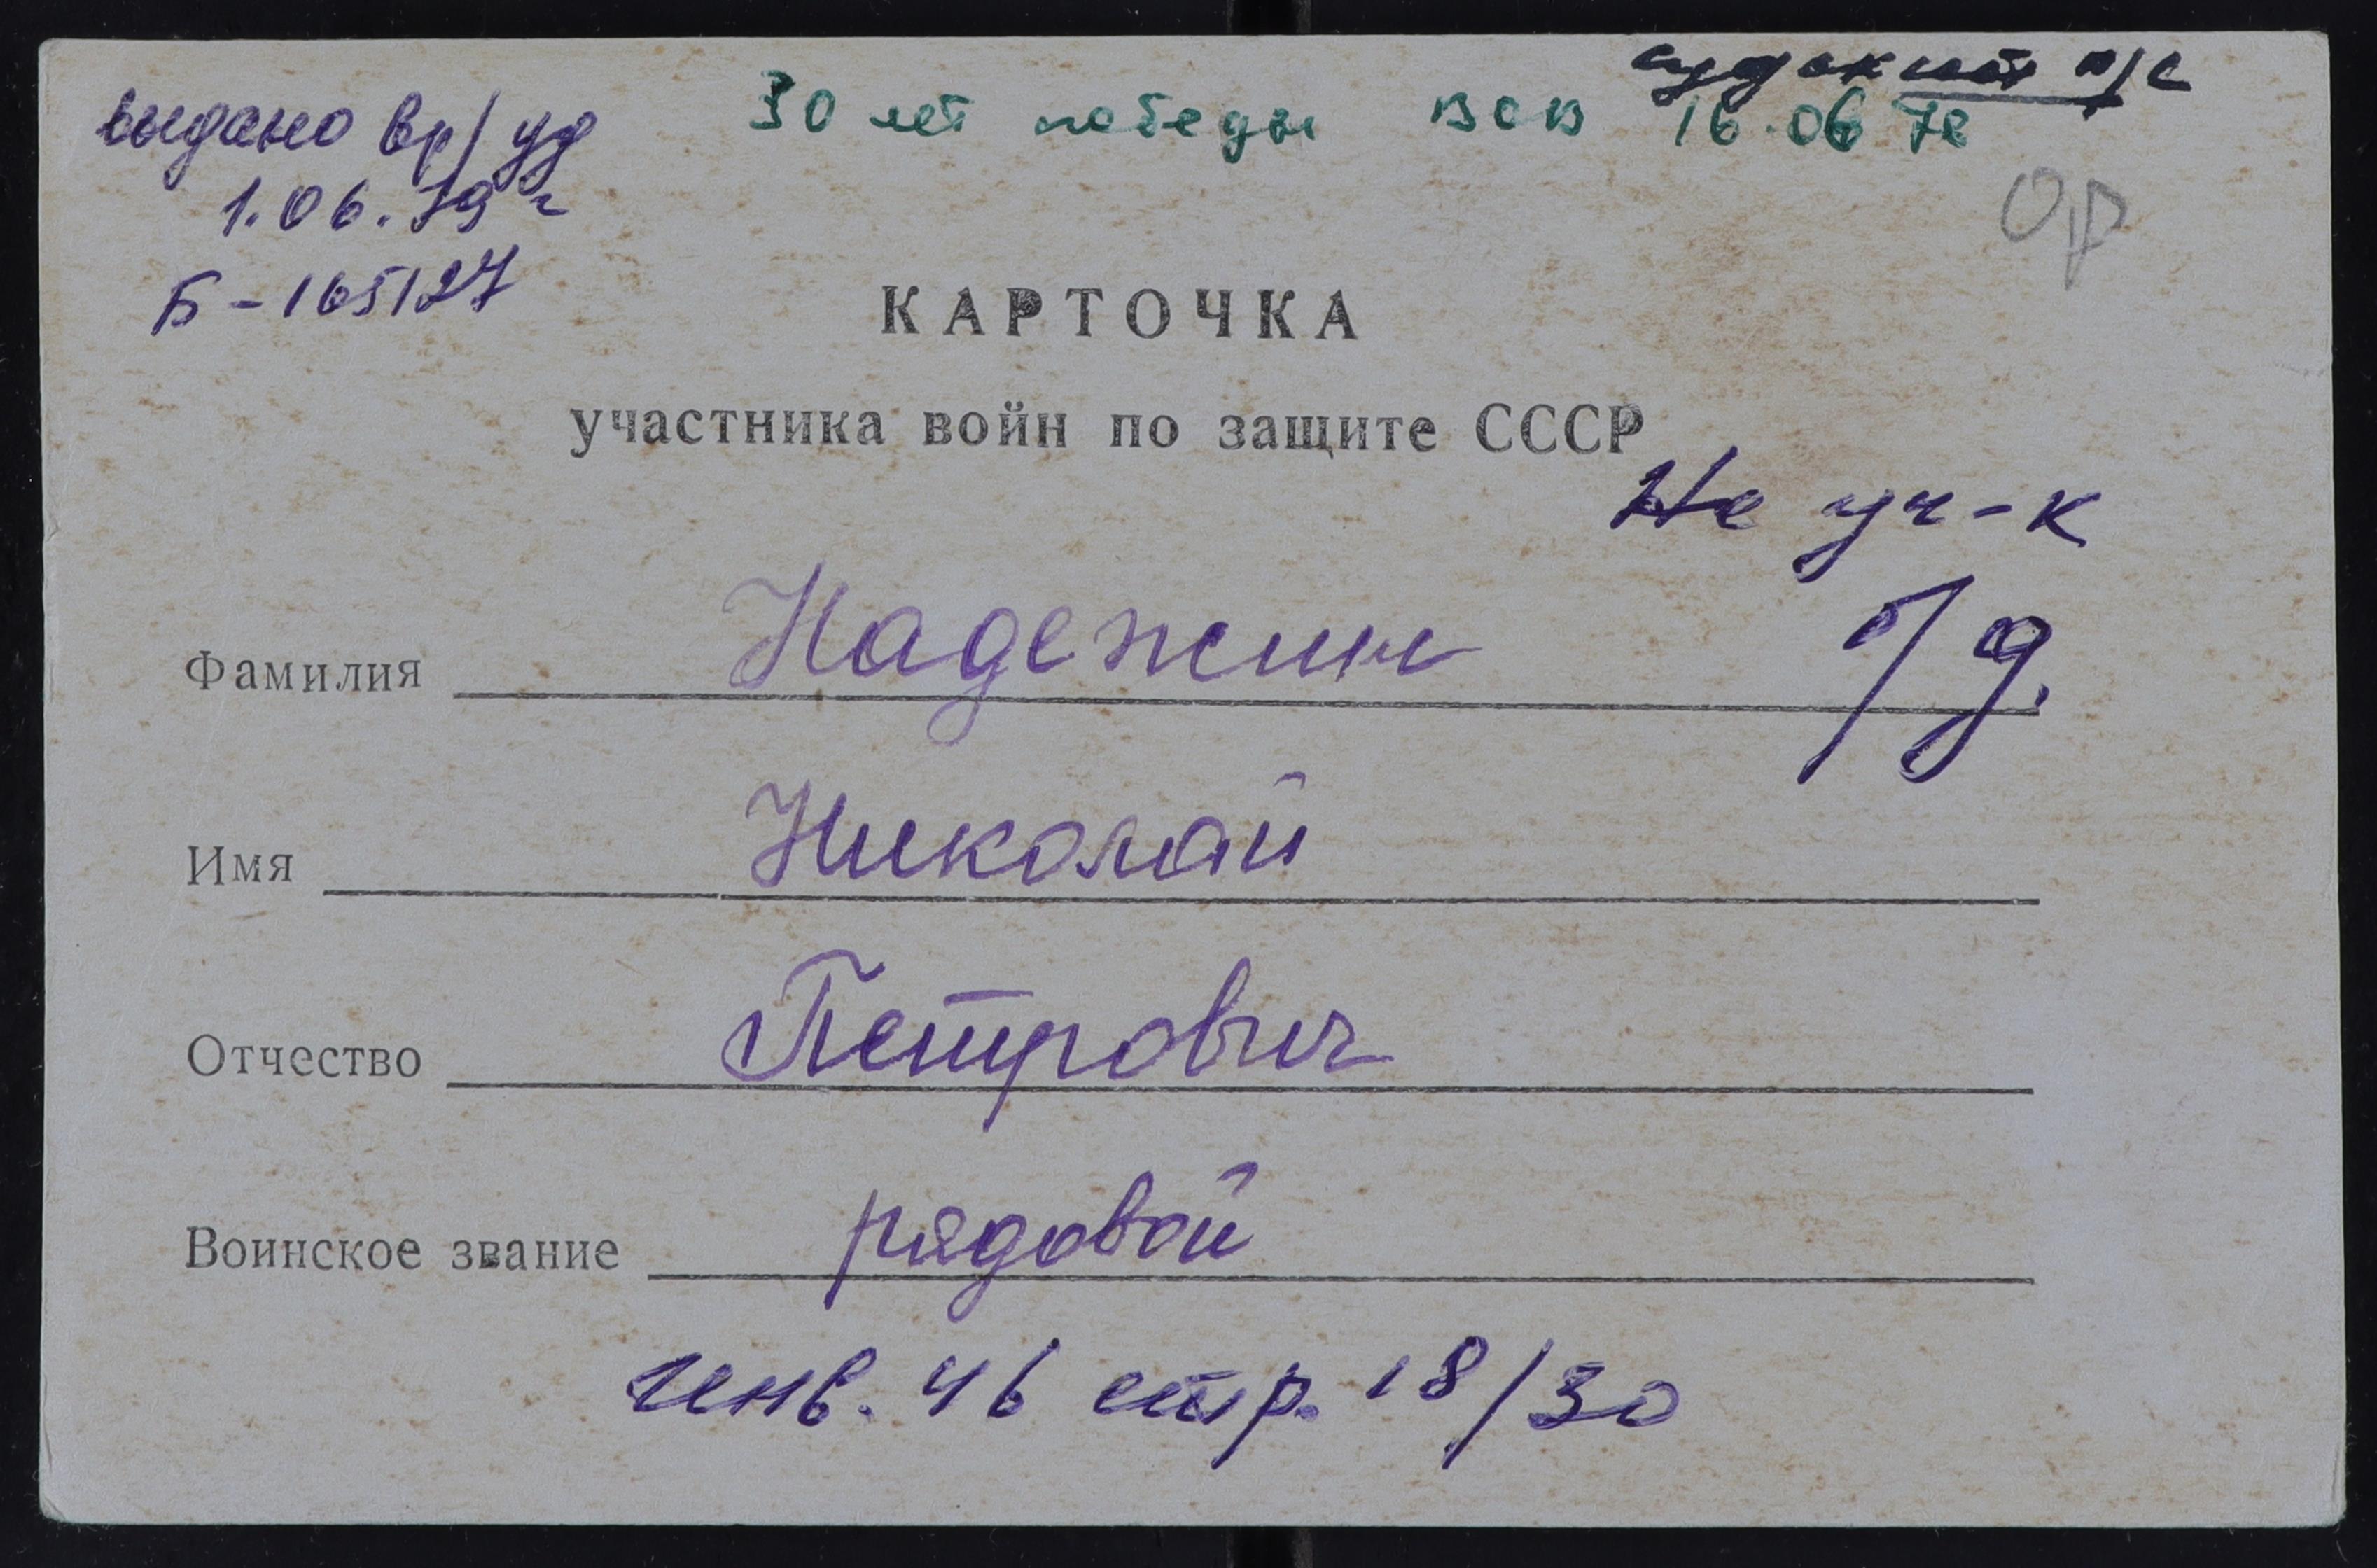 п/с
30 лет победы ВОВ 16.06 76
выдано вр/уд
1.06.79 г
Б-165127
Ор
КАРТОЧКА
участника войн по защите СССР
Не уч-к
б/д.
Фамилия Надежин
Имя Николай
Отчество Петрович
Воинское звание рядовой
инв. 46 стр. 18/30